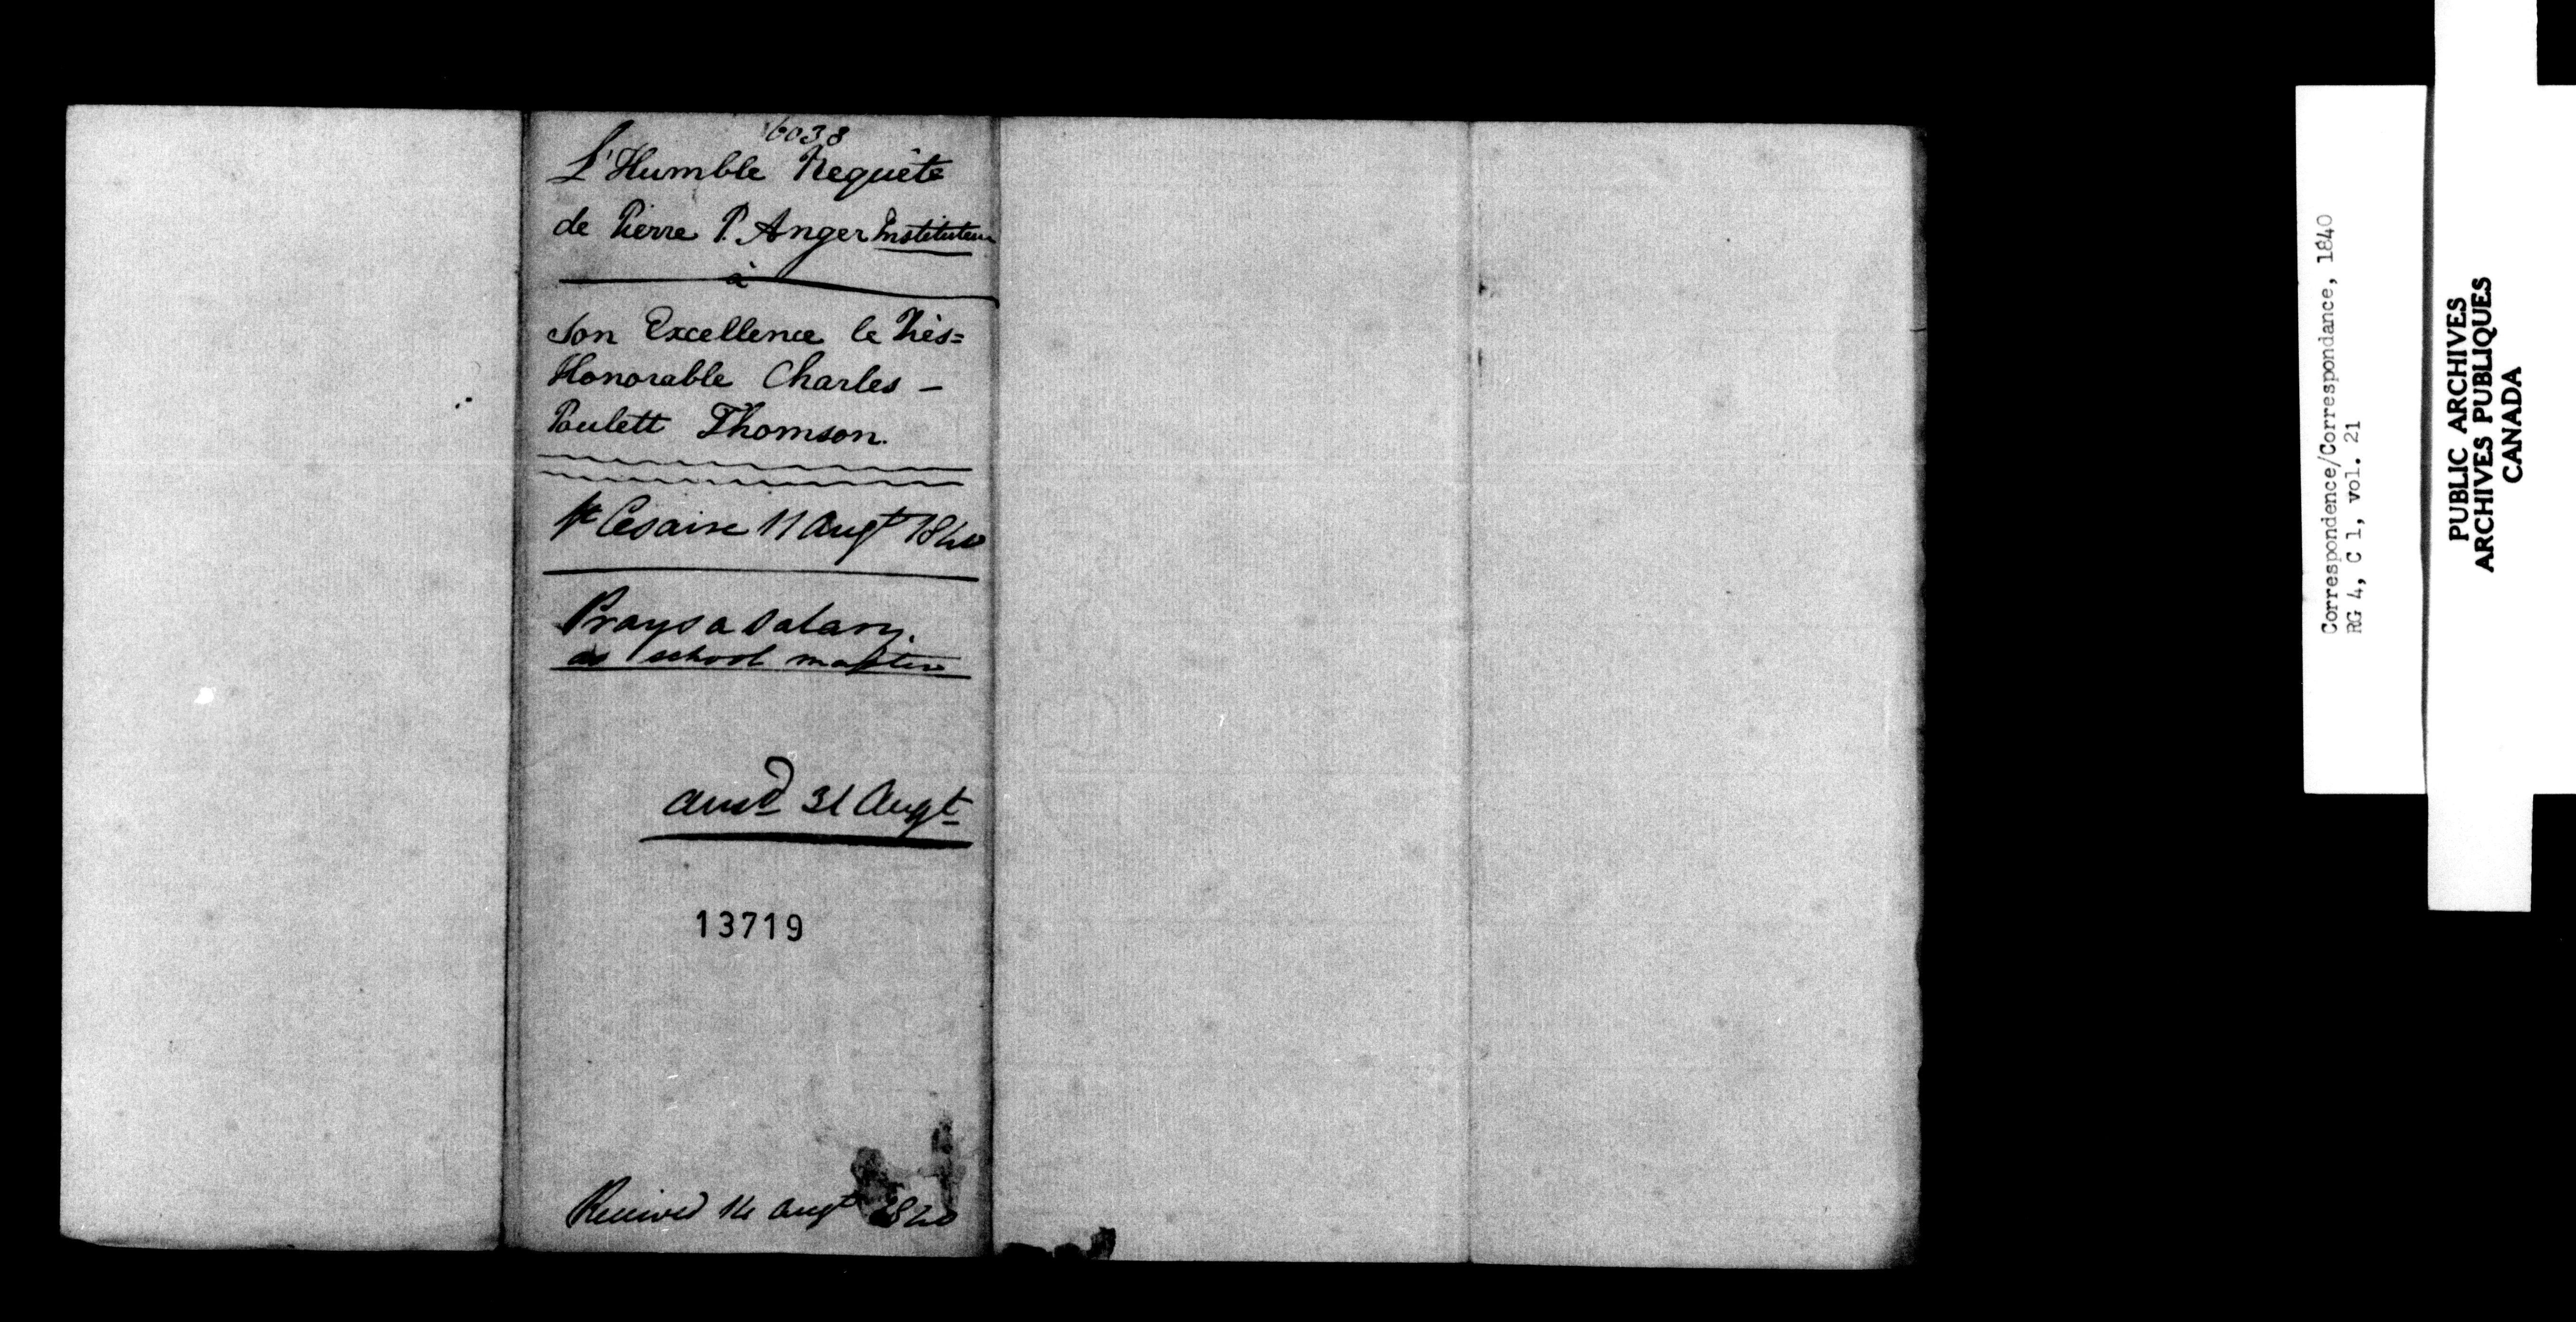 6038
L'Humble Requête
de Pierre P. Anger Instituteur
à
Son Excellence le Très=
Honorable Charles –
Poulett Thomson.
St Cesaire 11 Augt 1840
Prays a Salary.
as school master
ansd 31 Augt
13719
Received 14 Augt 1840
Correspondence/Correspondance, 1840
RG 4, C 1, vol. 21
PUBLIC ARCHIVES
ARCHIVES PUBLIQUES
CANADA